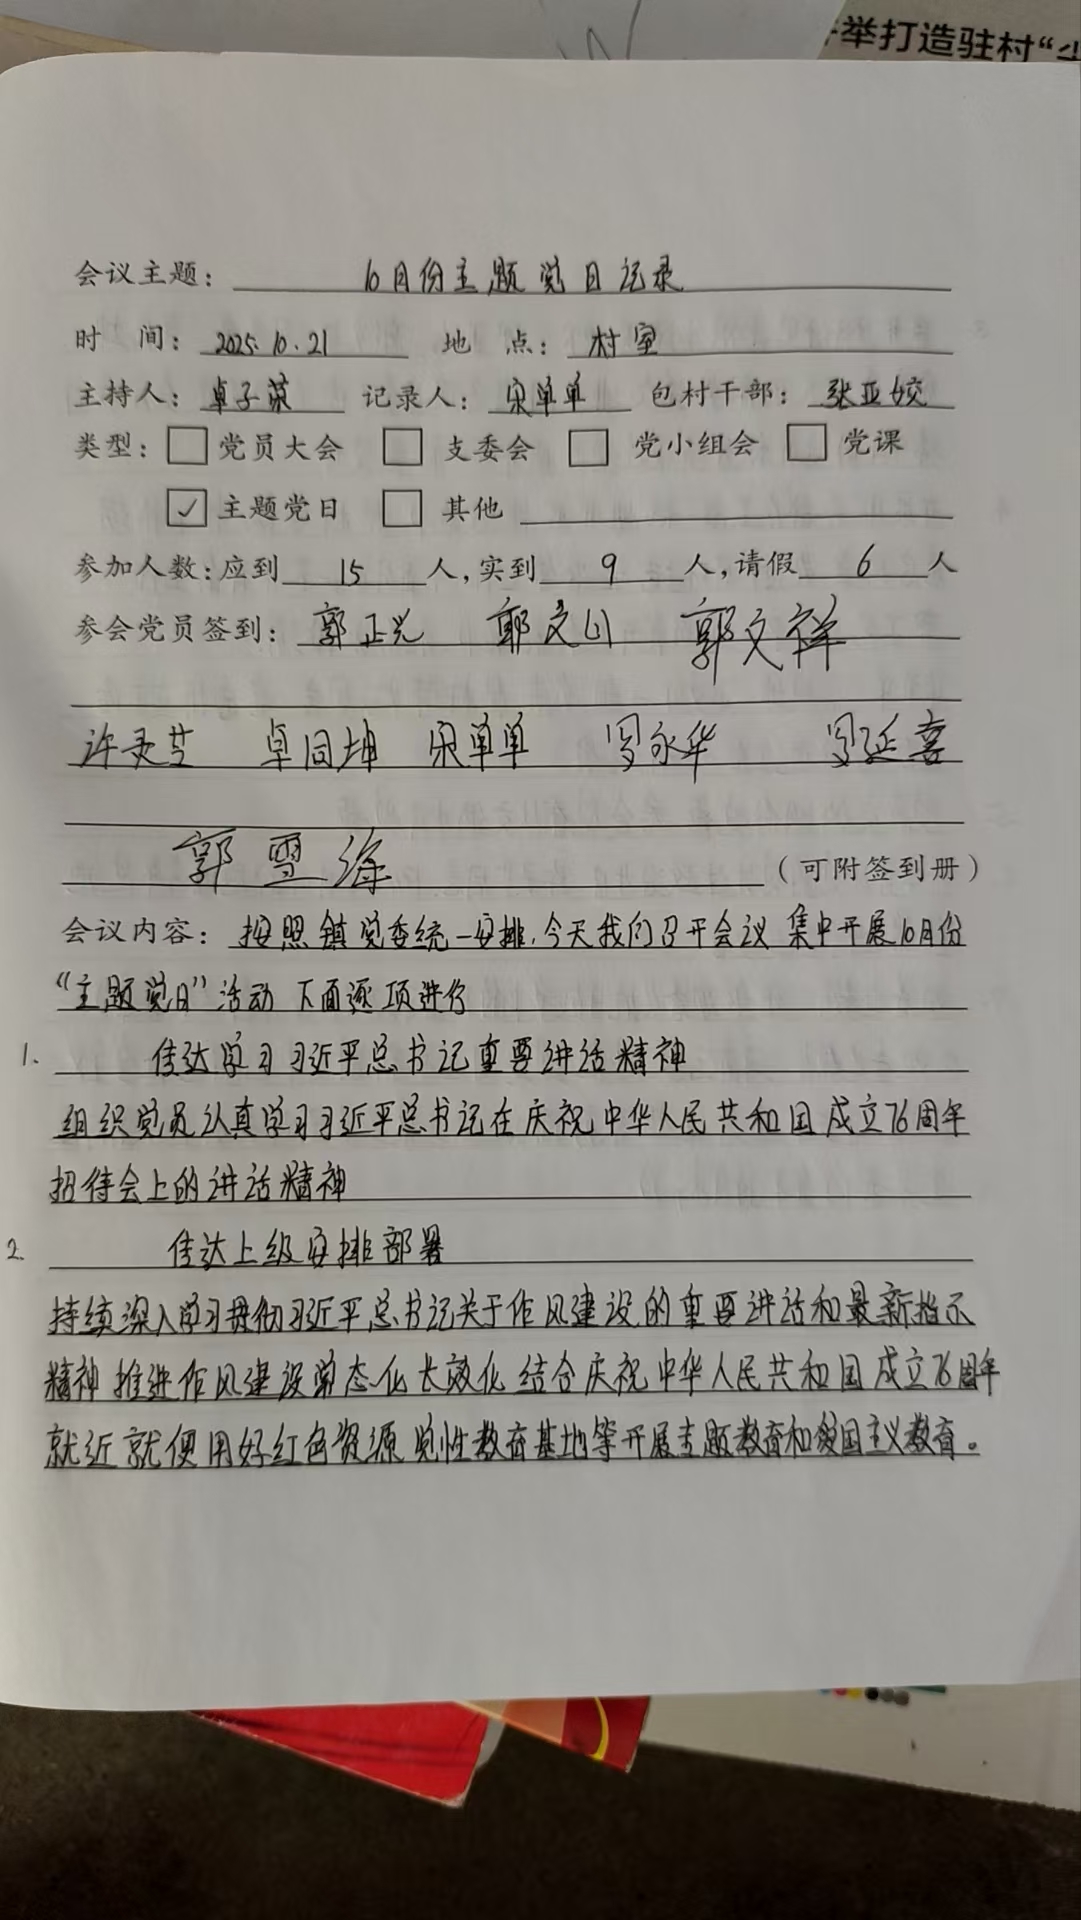 举打造驻村“尖
会议主题：10月份主题党日记录
时 间：2025.10.21 地 点：村室
主持人：卓子荣 记录人：宋单单 包村干部：张亚姣
类型：□党员大会 □支委会 □党小组会 □党课
☑主题党日 □其他
参加人数：应到15人，实到9人，请假6人
参会党员签到：郭正兴 郭文山 郭文祥
许灵芝 卓同坤 宋单单 罗永华 罗延喜
郭雪海 （可附签到册）
会议内容：按照镇党委统一安排，今天我们召开会议 集中开展10月份
“主题党日”活动 下面逐项进行
1. 传达学习习近平总书记重要讲话精神
组织党员认真学习习近平总书记在庆祝中华人民共和国成立76周年
招待会上的讲话精神
2. 传达上级安排部署
持续深入学习贯彻习近平总书记关于作风建设的重要讲话和最新指示
精神 推进作风建设常态化长效化 结合庆祝中华人民共和国成立76周年
就近就便用好红色资源 党性教育基地等开展主题教育和爱国主义教育。